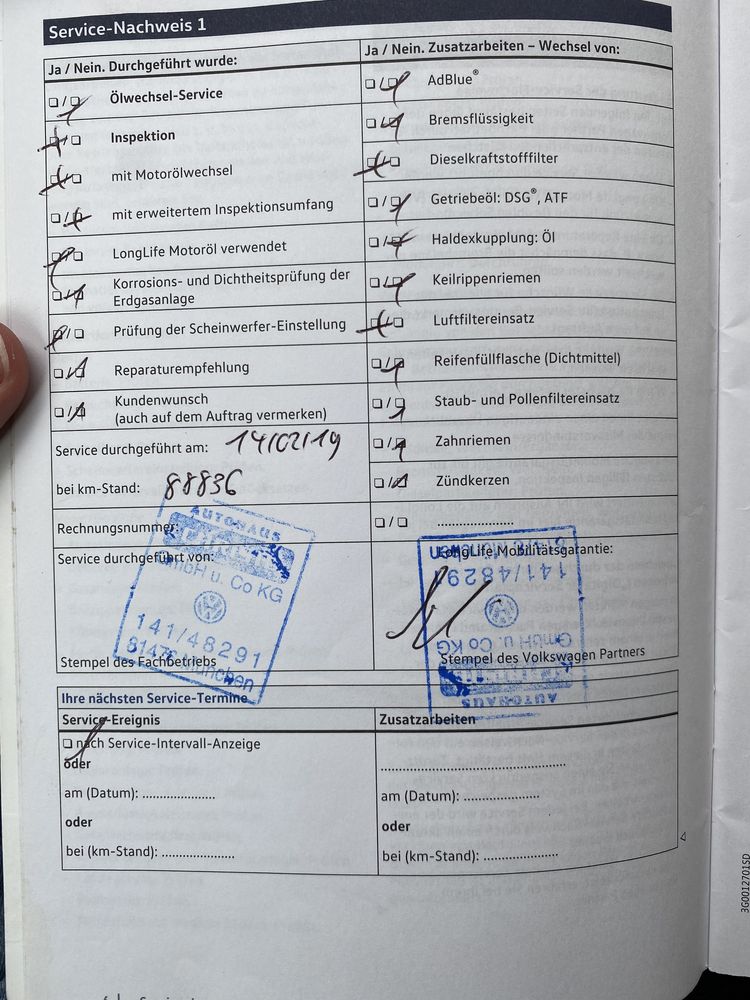 Service-Nachweis 1
Ja / Nein. Durchgeführt wurde:
☐/☐ Ölwechsel-Service
☐/☐ Inspektion
☐/☐ mit Motorölwechsel
☐/☐ mit erweitertem Inspektionsumfang
☐/☐ LongLife Motoröl verwendet
☐/☐ Korrosions- und Dichtheitsprüfung der
Erdgasanlage
☐/☐ Prüfung der Scheinwerfer-Einstellung
☐/☐ Reparaturempfehlung
☐/☐ Kundenwunsch
(auch auf dem Auftrag vermerken)
Service durchgeführt am: 14/02/19
bei km-Stand: 88836
Rechnungsnummer:
Service durchgeführt von:
AUTOHAUS
GmbH u. Co KG
141/48291
81476 München
Stempel des Fachbetriebs
Ja / Nein. Zusatzarbeiten – Wechsel von:
☐/☐ AdBlue®
☐/☐ Bremsflüssigkeit
☐/☐ Dieselkraftstofffilter
☐/☐ Getriebeöl: DSG®, ATF
☐/☐ Haldexkupplung: Öl
☐/☐ Keilrippenriemen
☐/☐ Luftfiltereinsatz
☐/☐ Reifenfüllflasche (Dichtmittel)
☐/☐ Staub- und Pollenfiltereinsatz
☐/☐ Zahnriemen
☐/☐ Zündkerzen
☐/☐ ......................
LongLife Mobilitätsgarantie:
AUTOHAUS
GmbH u. Co KG
141/48291
81476 München
Stempel des Volkswagen Partners
Ihre nächsten Service-Termine
Service-Ereignis
☐ nach Service-Intervall-Anzeige
oder
am (Datum): .....................
oder
bei (km-Stand): .....................
Zusatzarbeiten
.....................................................
am (Datum): .....................
oder
bei (km-Stand): .....................
3G0012701SD